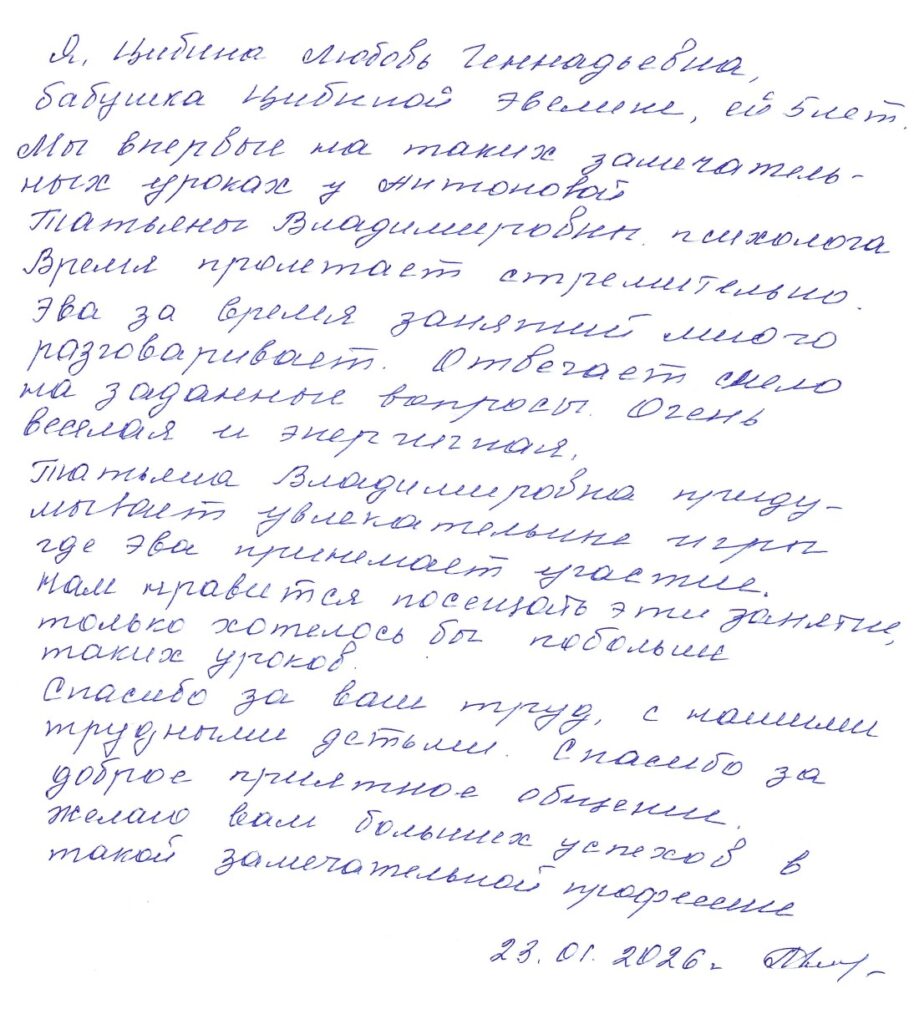 Я, Цибина Любовь Геннадьевна,
бабушка Цибиной Эвелине, ей 5 лет.
Мы впервые на таких замечатель-
ных уроках у Антоновой
Татьяны Владимировны психолога
Время пролетает стремительно.
Эва за время занятий много
разговаривает. Отвечает смело
на заданные вопросы. Очень
веселая и энергичная.
Татьяна Владимировна приду-
мывает увлекательные игры
где Эва принемает участие.
Нам нравится посещать эти занятие,
только хотелось бы побольше
таких уроков.
Спасибо за ваш труд, с нашими
трудными детьми. Спасибо за
доброе приятное общение.
Желаю вам больших успехов в
такой замечательной профессие
23.01.2026г